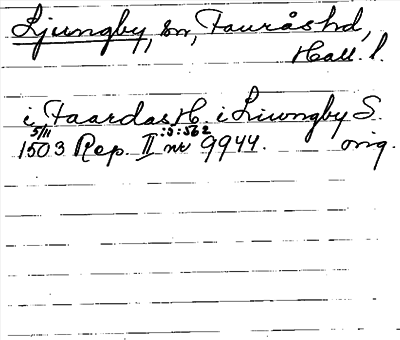 Ljungby, sn, Fauråshd,
Hall. l.
i Faardas H. i Liungby S.
5/11 :s: 562
1503 Rep. II nr 9944. orig.